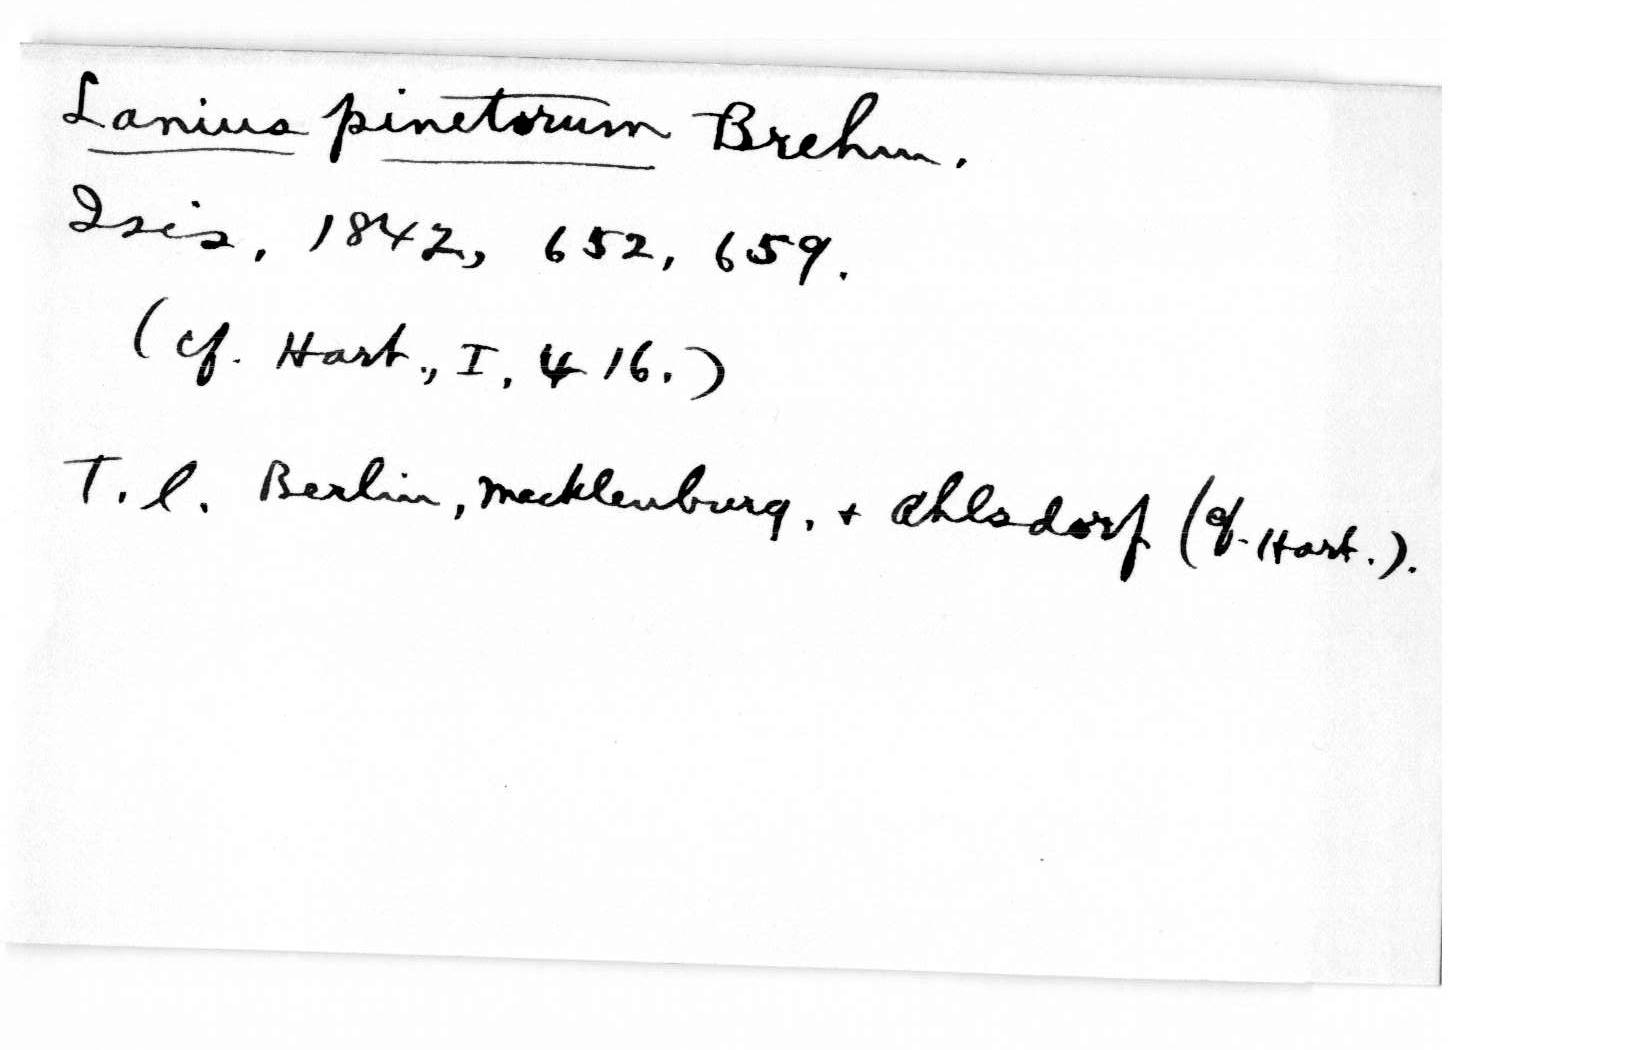 Lanius pinetorum Brehm.
Isis, 1842, 652, 659.
(cf. Hart., I, 416.)
T. l. Berlin, Mecklenburg, + Ahlsdorf (cf. Hart.).